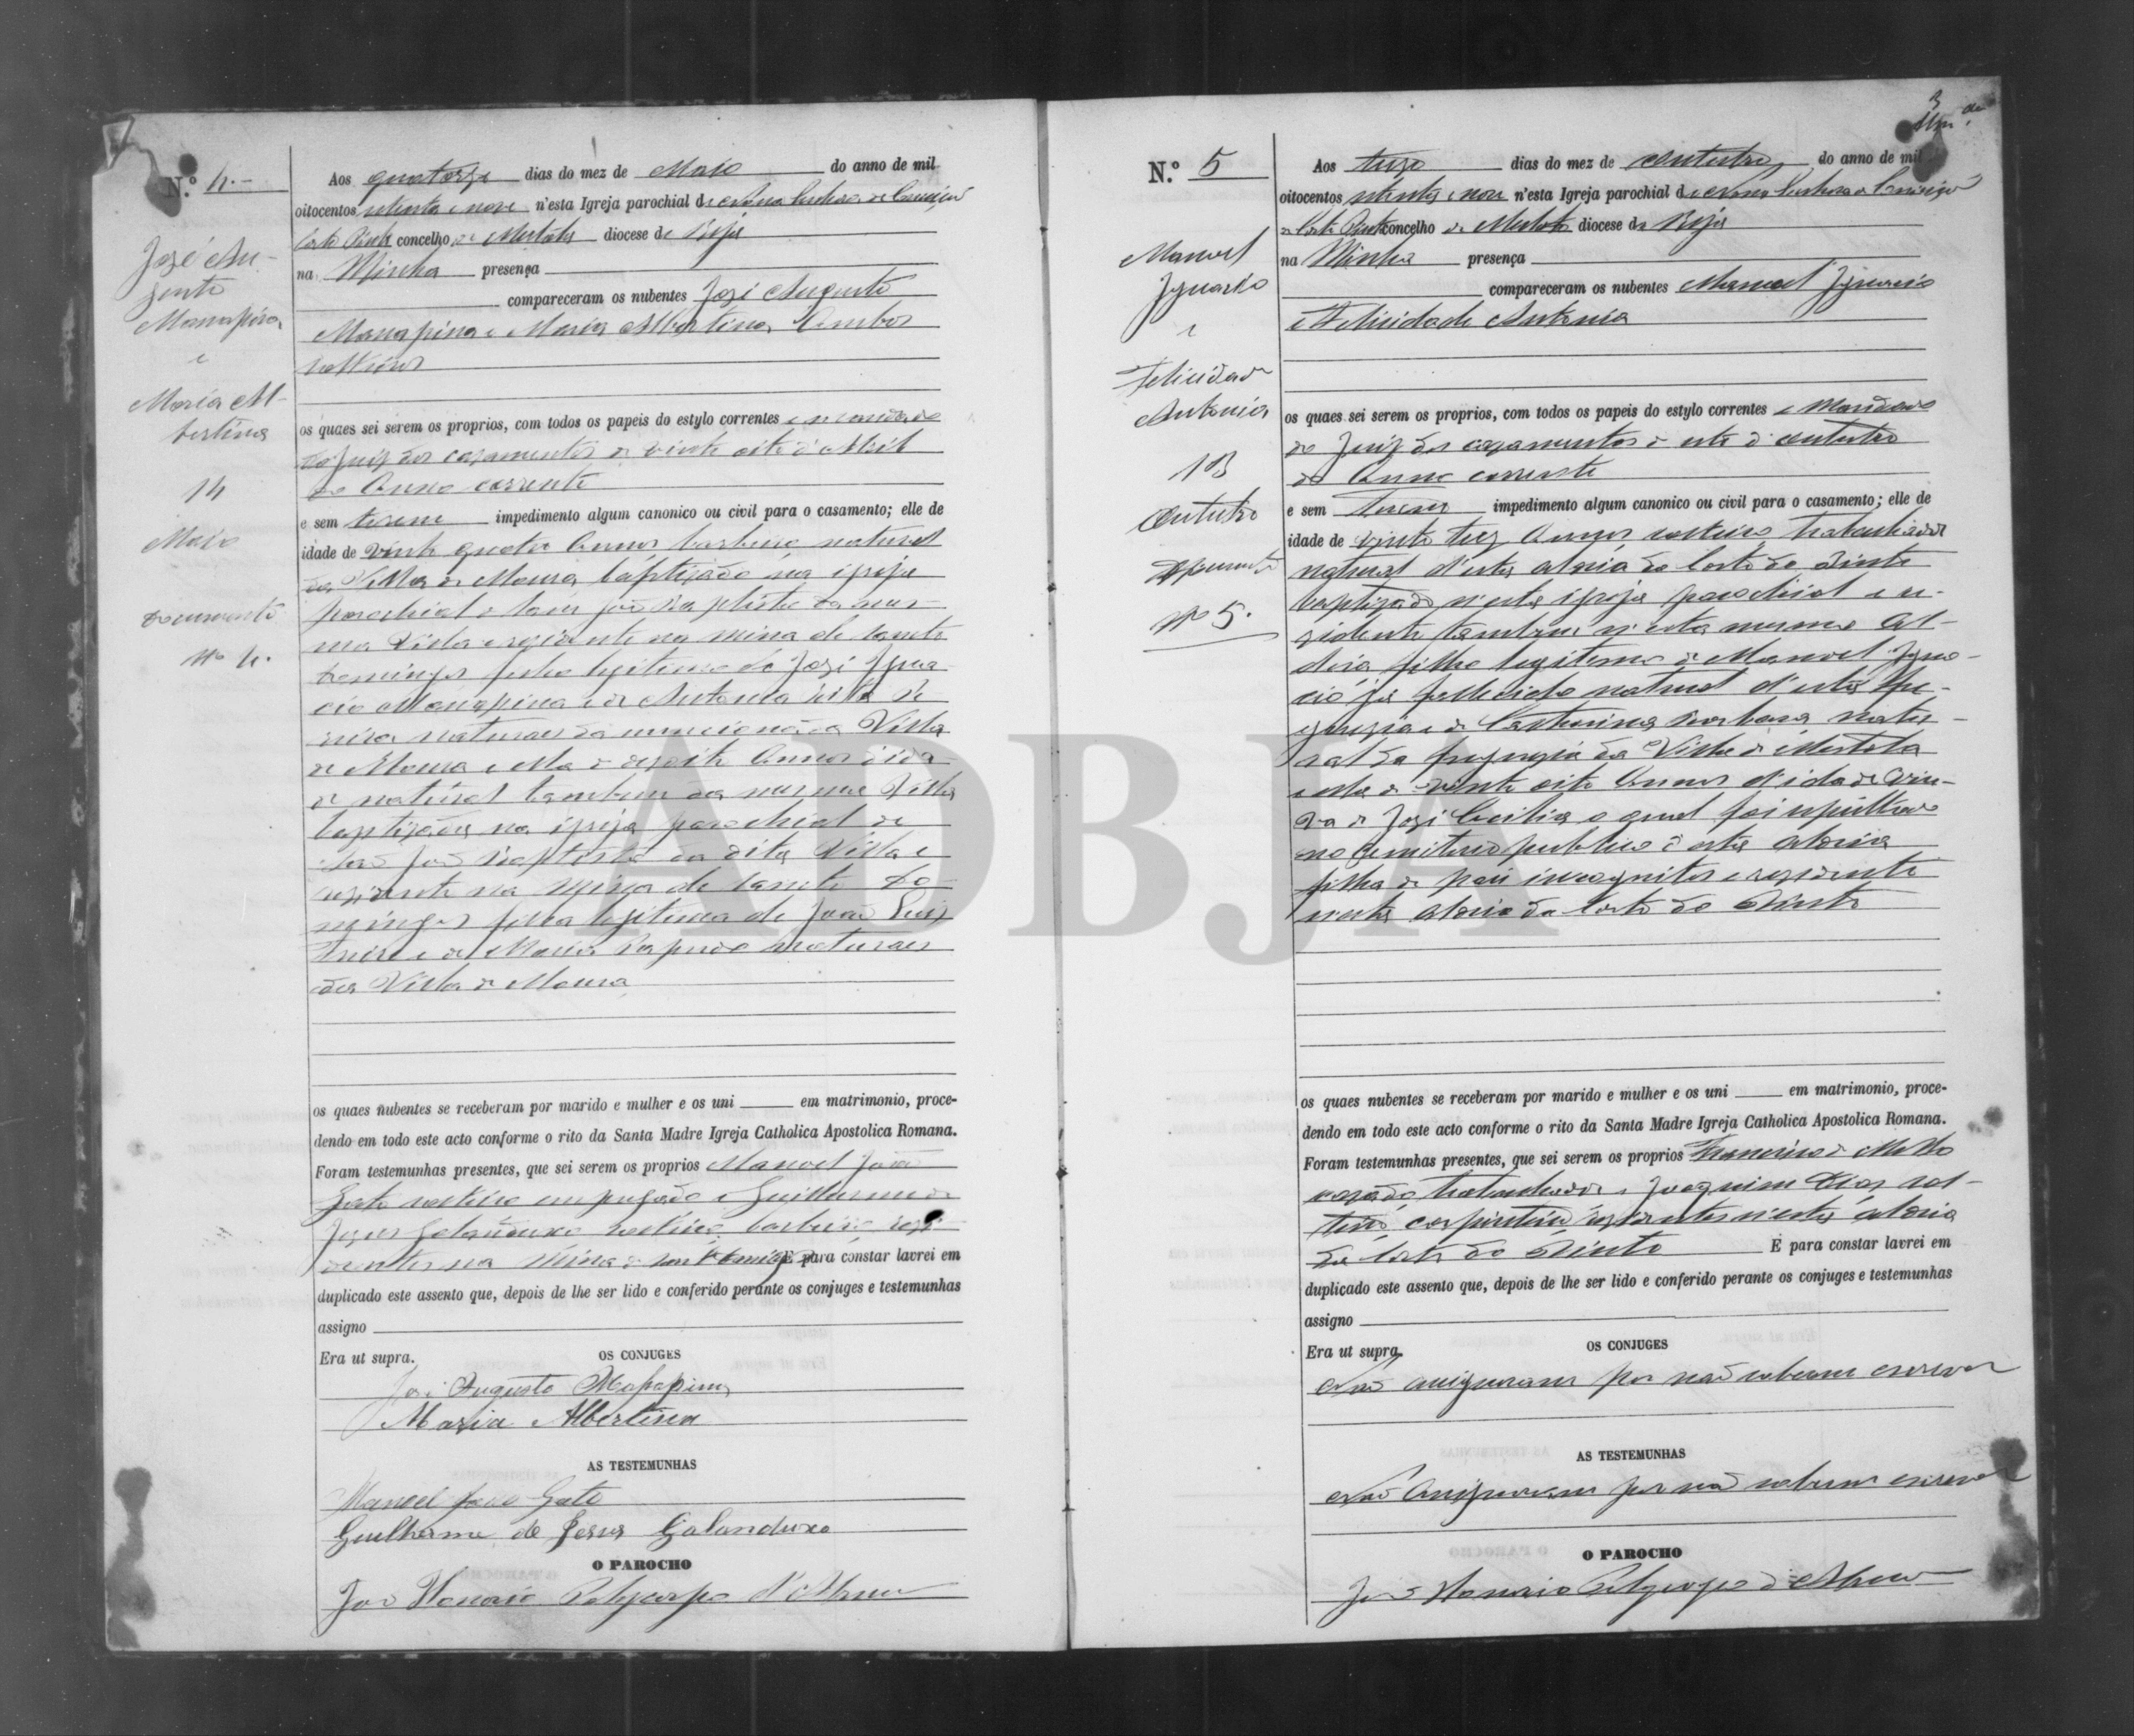 N.º 4.
José Au-
gusto
Manapina
e
Maria Al-
bertina
14
Maio
Documento
Nº 4.
Aos quatorze dias do mez de Maio do anno de mil
oitocentos setenta e nove n'esta Igreja parochial de Nossa Senhora da Conceição
Corte Pinto concelho de Mertola diocese de Beja
na Minha presença
compareceram os nubentes José Augusto
Manapina e Maria Albertina Ambos
solteiros
os quaes sei serem os proprios, com todos os papeis do estylo correntes e mandado
do Juiz dos cazamentos de vinte oito d'Abril
do Anno corrente
e sem terem impedimento algum canonico ou civil para o casamento; elle de
idade de vinte quatro Annos barbeiro natural
da Villa de Moura baptizado na igreja
parochial de Sam João Baptista da mes-
ma Villa e rezidente na mina de Santo
Domingos filho legitimo de José Igna-
cio Manapina e de Antonia Rita
naturaes da mencionada Villa
de Moura e ella de dezoito Annos d'ida-
de natural tambem da mesma Villa
baptizada na igreja parochial de
São João Baptista da dita Villa e
rezidente na Mina de Santo Do-
mingos filha legitima de João Luiz
e de Maria naturaes
da Villa de Moura
os quaes nubentes se receberam por marido e mulher e os uni em matrimonio, proce-
dendo em todo este acto conforme o rito da Santa Madre Igreja Catholica Apostolica Romana.
Foram testemunhas presentes, que sei serem os proprios Manoel João
Gato solteiro empregado e Guilherme de
Jezus Galanduxo solteiro barbeiro rezi-
dentes na Mina de Sam Domingos E para constar lavrei em
duplicado este assento que, depois de lhe ser lido e conferido perante os conjuges e testemunhas
assigno
Era ut supra.
OS CONJUGES
José Augusto
Maria Albertina
AS TESTEMUNHAS
Manoel João Gato
Guilherme de Jesus Galanduxo
O PAROCHO
João Honorio Polycarpo d'Abreu
3
N.º 5
Manoel
Ignacio
e
Felicidade
Antonia
13
Outubro
Documento
Nº 5.
Aos treze dias do mez de Outubro do anno de mil
oitocentos setenta e nove n'esta Igreja parochial de Nossa Senhora da Conceição
de Corte Pinto concelho de Mertola diocese de Beja
na Minha presença
compareceram os nubentes Manoel Ignacio
e Felicidade Antonia
os quaes sei serem os proprios, com todos os papeis do estylo correntes e Mandado
do Juiz dos cazamentos de sete d'Outubro
do Anno corrente
e sem terem impedimento algum canonico ou civil para o casamento; elle de
idade de vinte trez Annos solteiro trabalhador
natural d'esta aldeia da Corte do Pinto
baptizado n'esta igreja parochial e re-
zidente tambem n'esta mesma Al-
deia filho legitimo de Manoel Igna-
cio já fallecido natural d'esta fre-
guezia e de Catharina Barbara natu-
ral da freguezia da Villa de Mertola
e ella de vinte oito Annos d'idade viu-
va de José Cecilia o qual foi sepultado
no cemiterio publico d'esta aldeia
filha de pais incognitos e rezidente
n'esta Aldeia da Corte do Pinto
os quaes nubentes se receberam por marido e mulher e os uni em matrimonio, proce-
dendo em todo este acto conforme o rito da Santa Madre Igreja Catholica Apostolica Romana.
Foram testemunhas presentes, que sei serem os proprios Francisco de Mello
cazado trabalhador e Joaquim Dias sol-
teiro carpinteiro rezidentes n'esta aldeia
da Corte do Pinto E para constar lavrei em
duplicado este assento que, depois de lhe ser lido e conferido perante os conjuges e testemunhas
assigno
Era ut supra.
OS CONJUGES
Não assignaram por não saberem escrever
AS TESTEMUNHAS
Não Assignaram por não saberem escrever
O PAROCHO
João Honorio Polycarpo d'Abreu
ADBJA